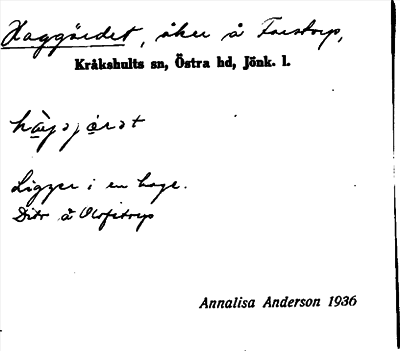 Haggärdet, åker å Farstorp,
Kråkshults sn, Östra hd, Jönk. l.
Ligger i en hage.
Dito å Olofstorp
Annalisa Anderson 1936